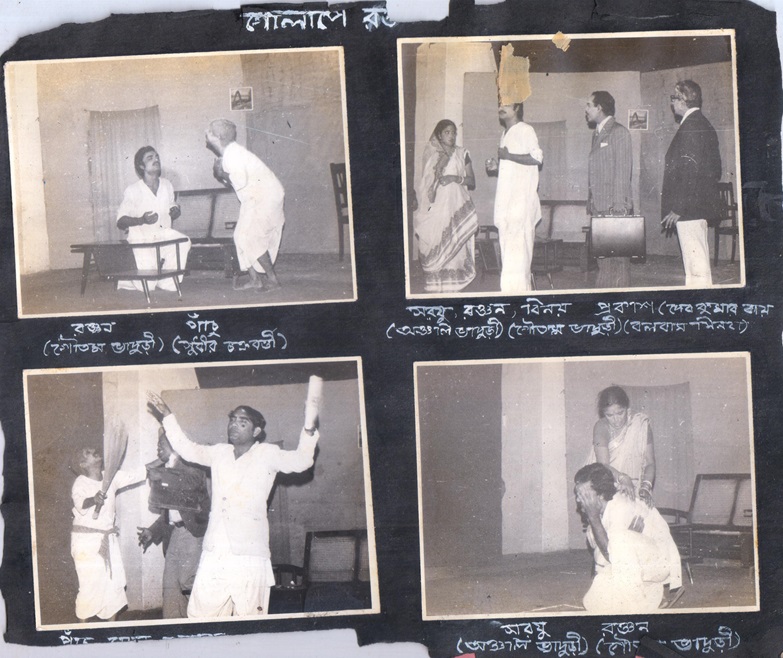 গোলাপে
রঞ্জন পাঁচু
(গৌতম ভাদুড়ী) (সুধীর চক্রবর্ত্তী)
সরযু, রঞ্জন, বিনয় প্রকাশ (দেব কুমার রায়
(অঞ্জলি ভাদুড়ী) (গৌতম ভাদুড়ী) (বলরাম
পাঁচু
সরযু রঞ্জন
(অঞ্জলি ভাদুড়ী) ভাদুড়ী)